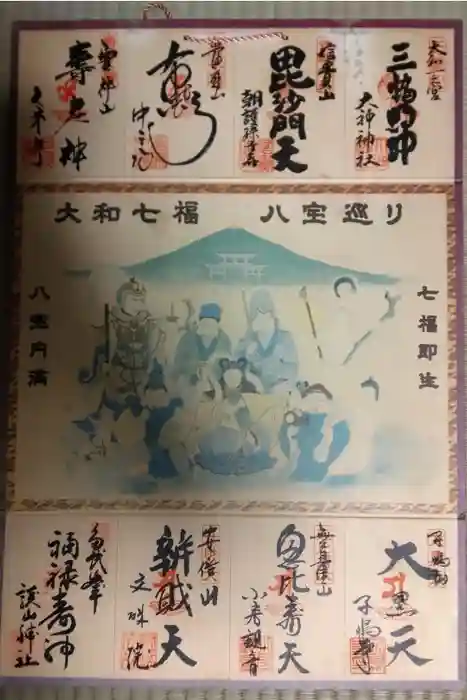 大和一之宮
三輪明神
大神神社
信貴山
毘沙門天
朝護孫子寺
當麻山
布袋
中之坊
寿老神
久米寺
大和七福 八宝巡り
七福即生
八宝円満
子嶋山
大黒天
子嶋寺
恵比寿天
小房観音
安倍山
辨財天
文殊院
多武峯
福禄寿神
談山神社